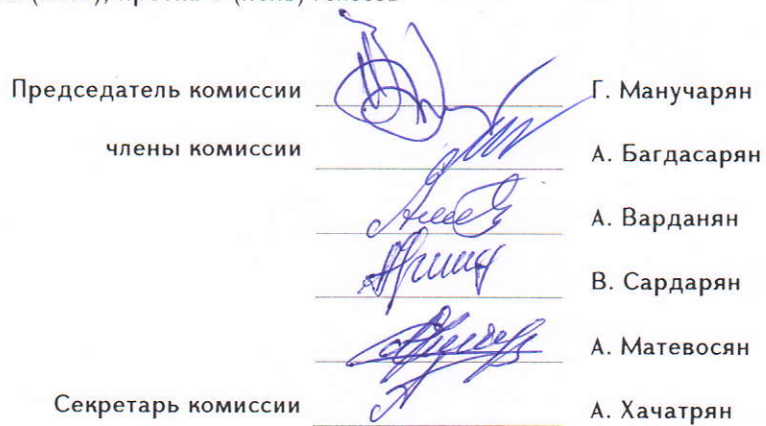 Председатель комиссии Г. Манучарян
члены комиссии А. Багдасарян
А. Варданян
В. Сардарян
А. Матевосян
Секретарь комиссии А. Хачатрян